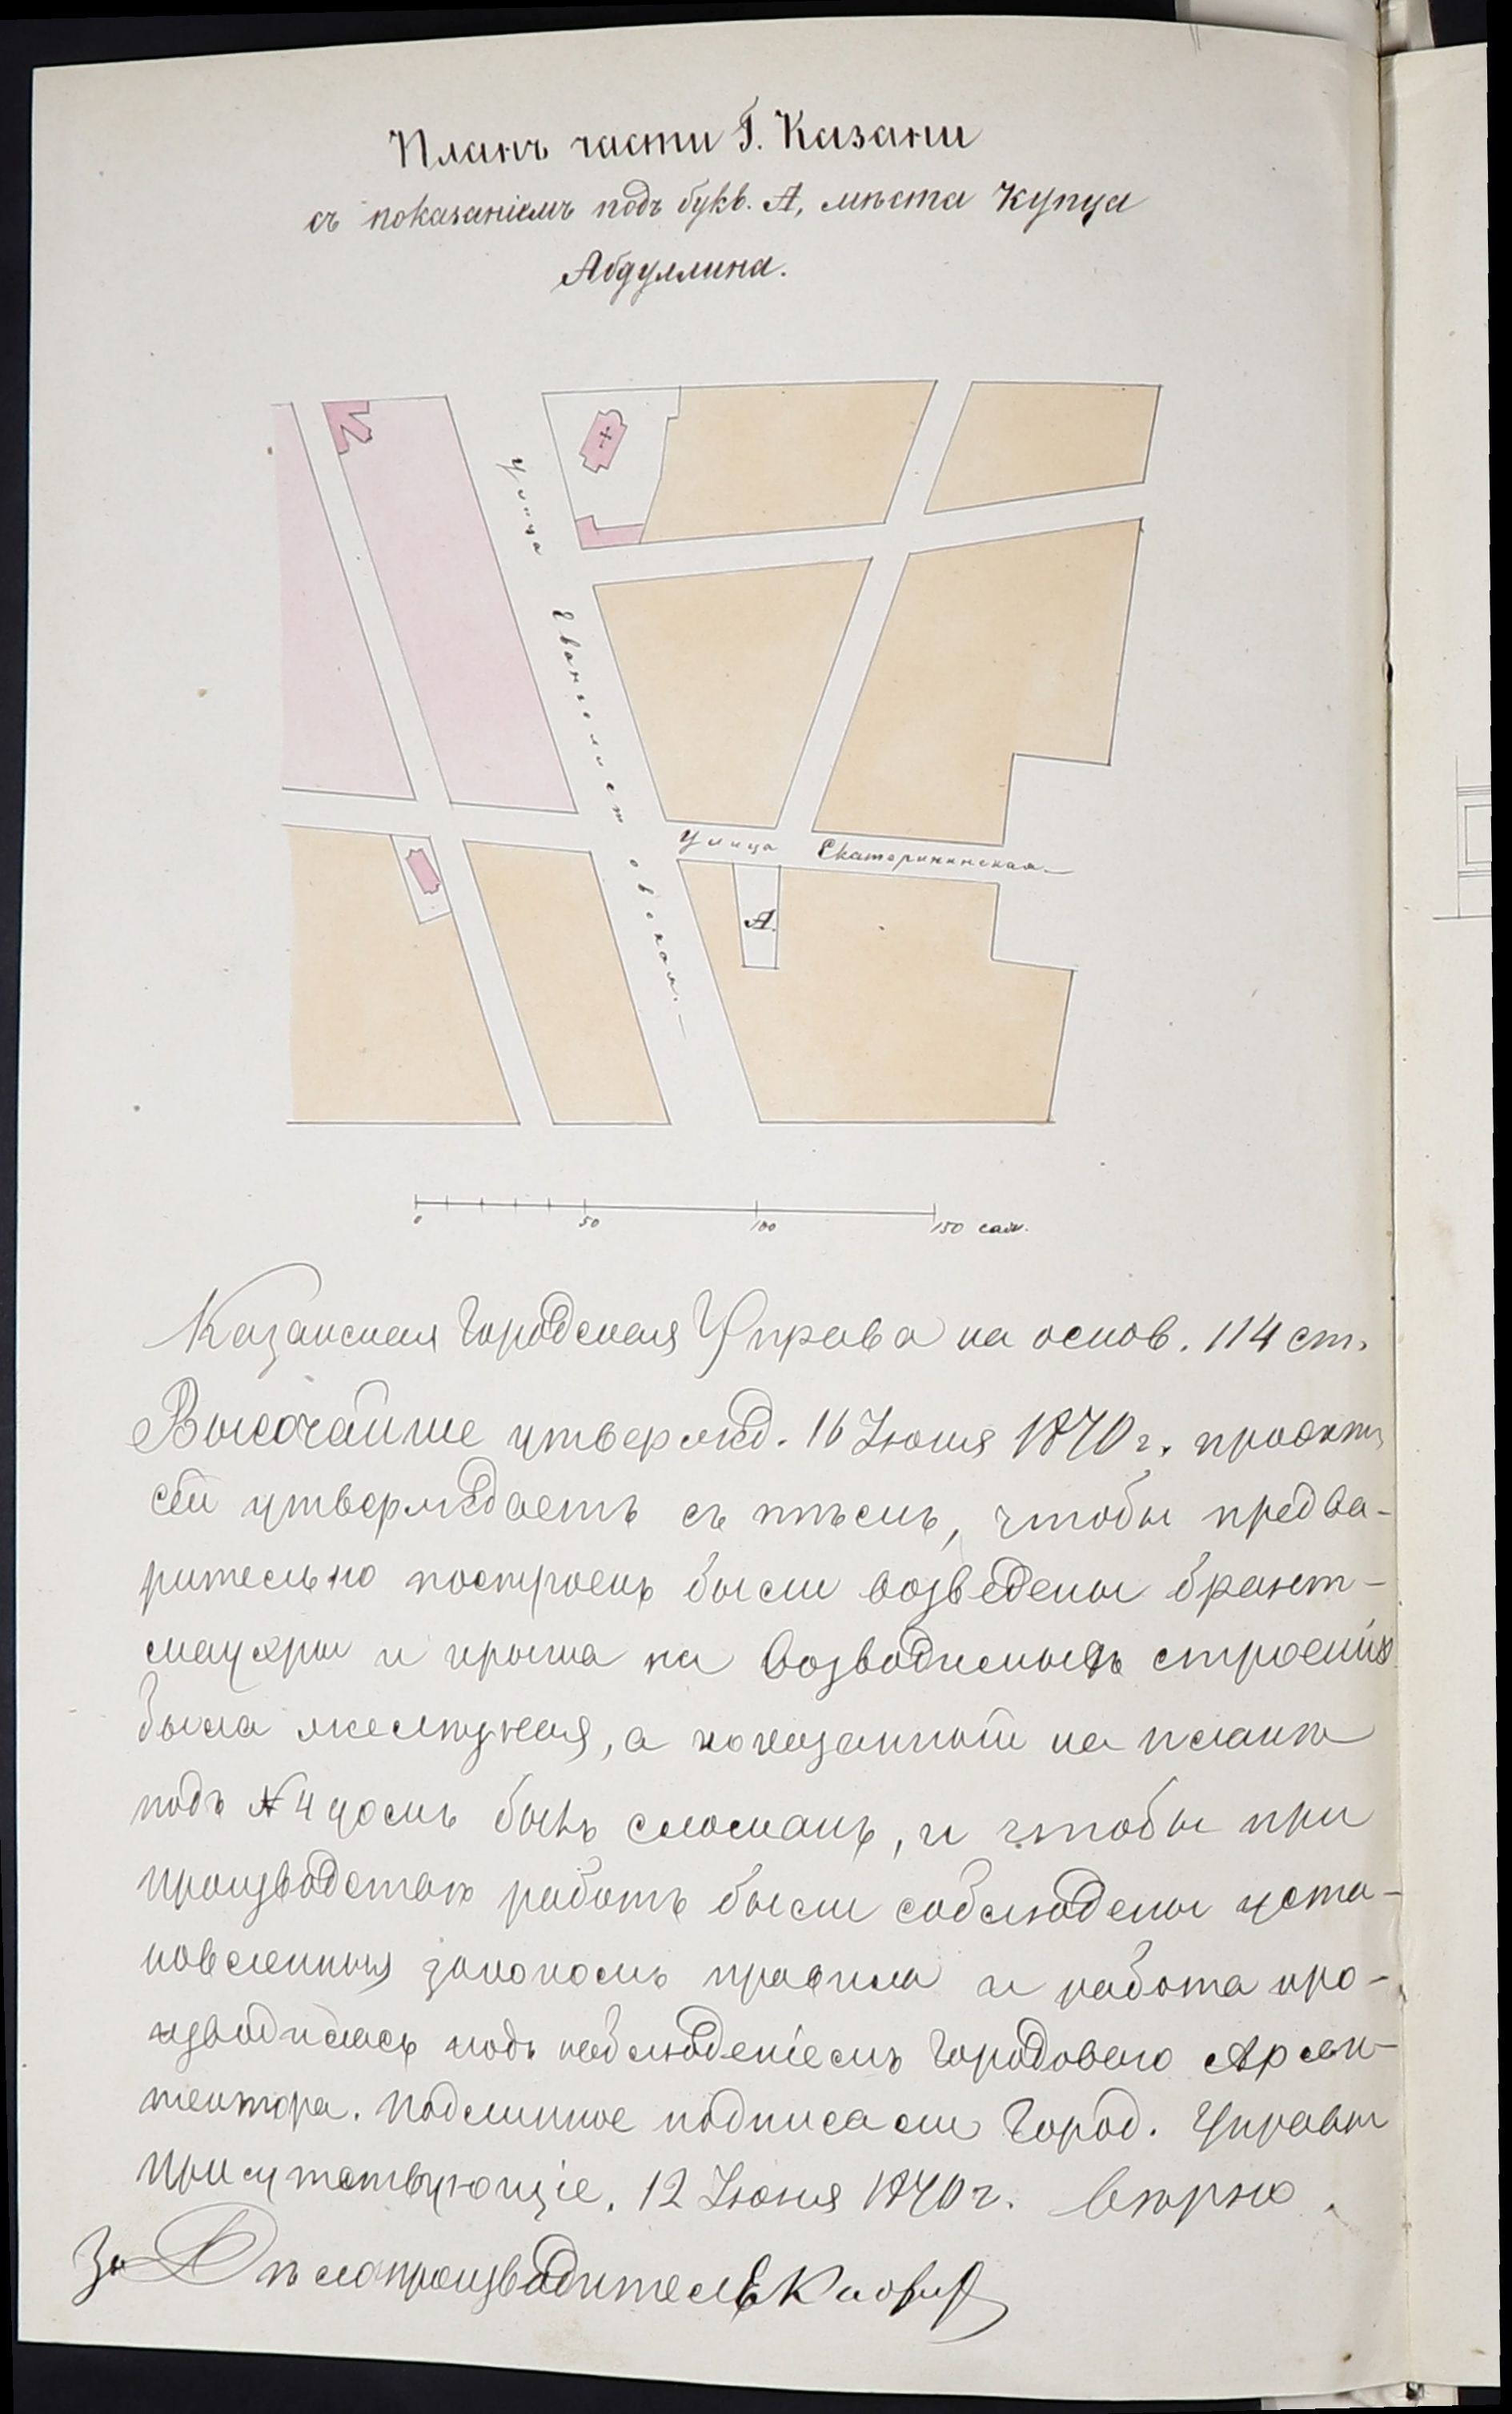 Планъ части Г. Казани
съ показаніемъ подъ букв. А, мѣста купца
Абдуллина.
Улица Евангелистовская.
Улица Екатерининская
А.
0 50 100 150 саж.
Казанская Городская Управа на основ. 114 ст.
Высочайше утвержд. 16 Іюня 1870 г. проэктъ
сей утверждаетъ съ тѣмъ, чтобы предва-
рительно построекъ были возведены брант-
мауеры и крыша на возводимыхъ строеніях
была желѣзная, а показанный на планѣ
подъ № 4 домъ былъ сломанъ, и чтобы при
производствѣ работъ были соблюдены уста-
новленныя закономъ правила и работа про-
изводилась подъ наблюденіемъ Городового Архи-
тектора. Подлинное подписали Город. Управы
Присутствующіе. 12 Іюня 1870 г. Вѣрно.
За Дѣлопроизводителя